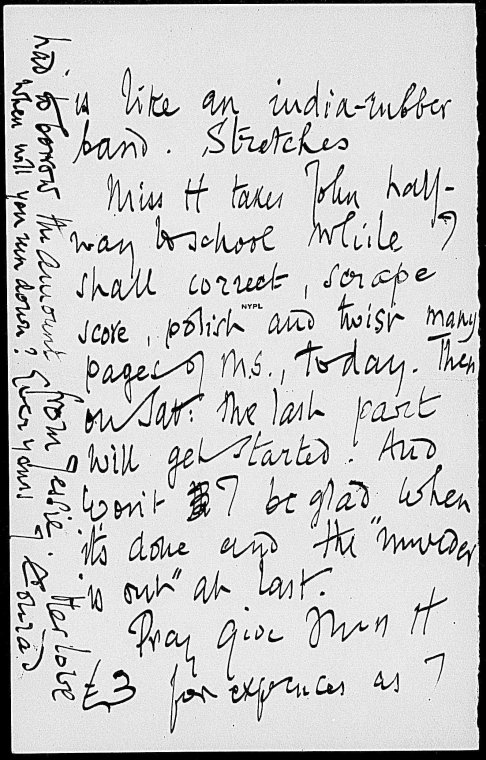 is like an india-rubber
band. Stretches
Miss H takes John half-
way to school while I
shall correct, scrape
NYPL
score, polish and twist many
pages of MS., today. Then
on Sat: the last part
will get started. And
won't I be glad when
it's done and the "murder
is out" at last.
Pray give Miss H
£3 for expences as I
had to borrow the amount from Jessie. Her love
When will you run down? Ever yours J. Conrad